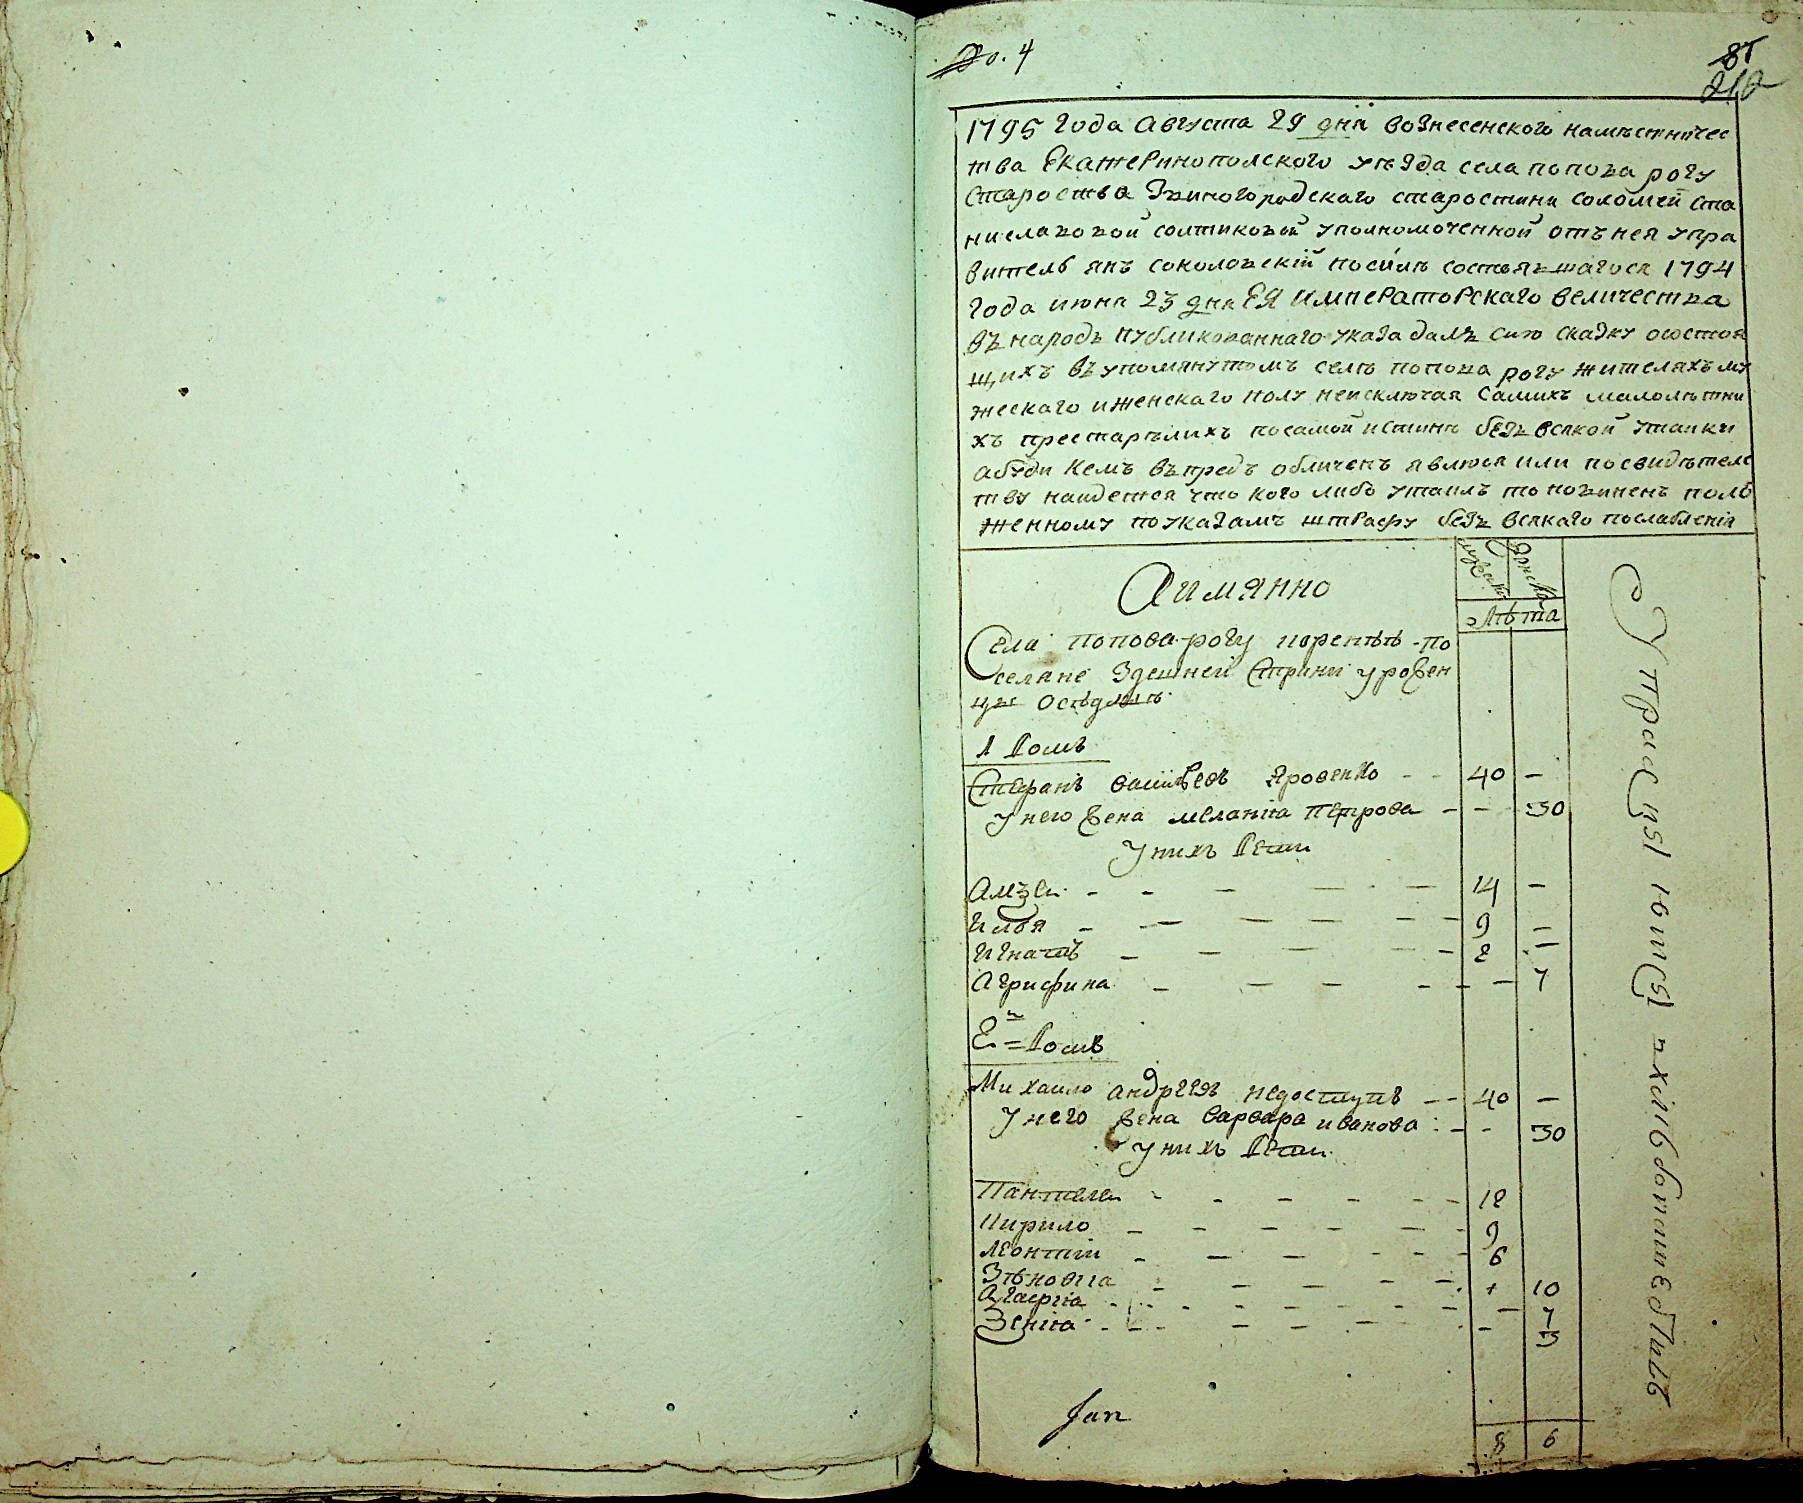 №. 4
87
212
1795 года августа 29 дня вознесенского намѣстничес
тва Екатеринополского уѣзда села попова рогу
староства Звиногородскаго старостини соломеи ста
ниславовой солтиковой уполномоченной отъ нея упра
витель янъ соколовскій посилѣ состоявшагося 1794
года июня 23 дня ЕЯ императорскаго величества
въ народъ публикованнаго указа далъ сию сказку осостоя
щихъ въ упомянутомъ селѣ попова рогу жителяхъ му
жескаго и женскаго полу неисключая самихъ малолѣтни
хъ престарѣлихъ посамой истинѣ безъ всякой утайки
абуди кемъ въпредъ обличенъ явлюся или посвидѣтелс
тву найдется что кого либо утаилъ то повиненъ поло
женному по указамъ штрафу безъ всякаго послабленія
Аимянно
Лѣта
Села попова рогу
селяне здешней
1 Домъ
Стефанъ василевъ Яровенко - - 40 -
у него жена меланія Петрова - - 30
у нихъ Дети
14 -
Илья - - - - - 9 -
Игнатъ - - - - 2 -
Агрифина - - - - - - 7
2 = Домъ
Михаило андреевъ недоступъ - - 40 -
у него жена варвара иванова - - 30
у нихъ Дети
Пантелеи - - - - - 12
Кирило - - - - - 9
Леонтии - - - - - 6
Зѣновия - - - - - 10
Агафия - - - - - - 7
Зения - - - - - 3
Jan
8 6